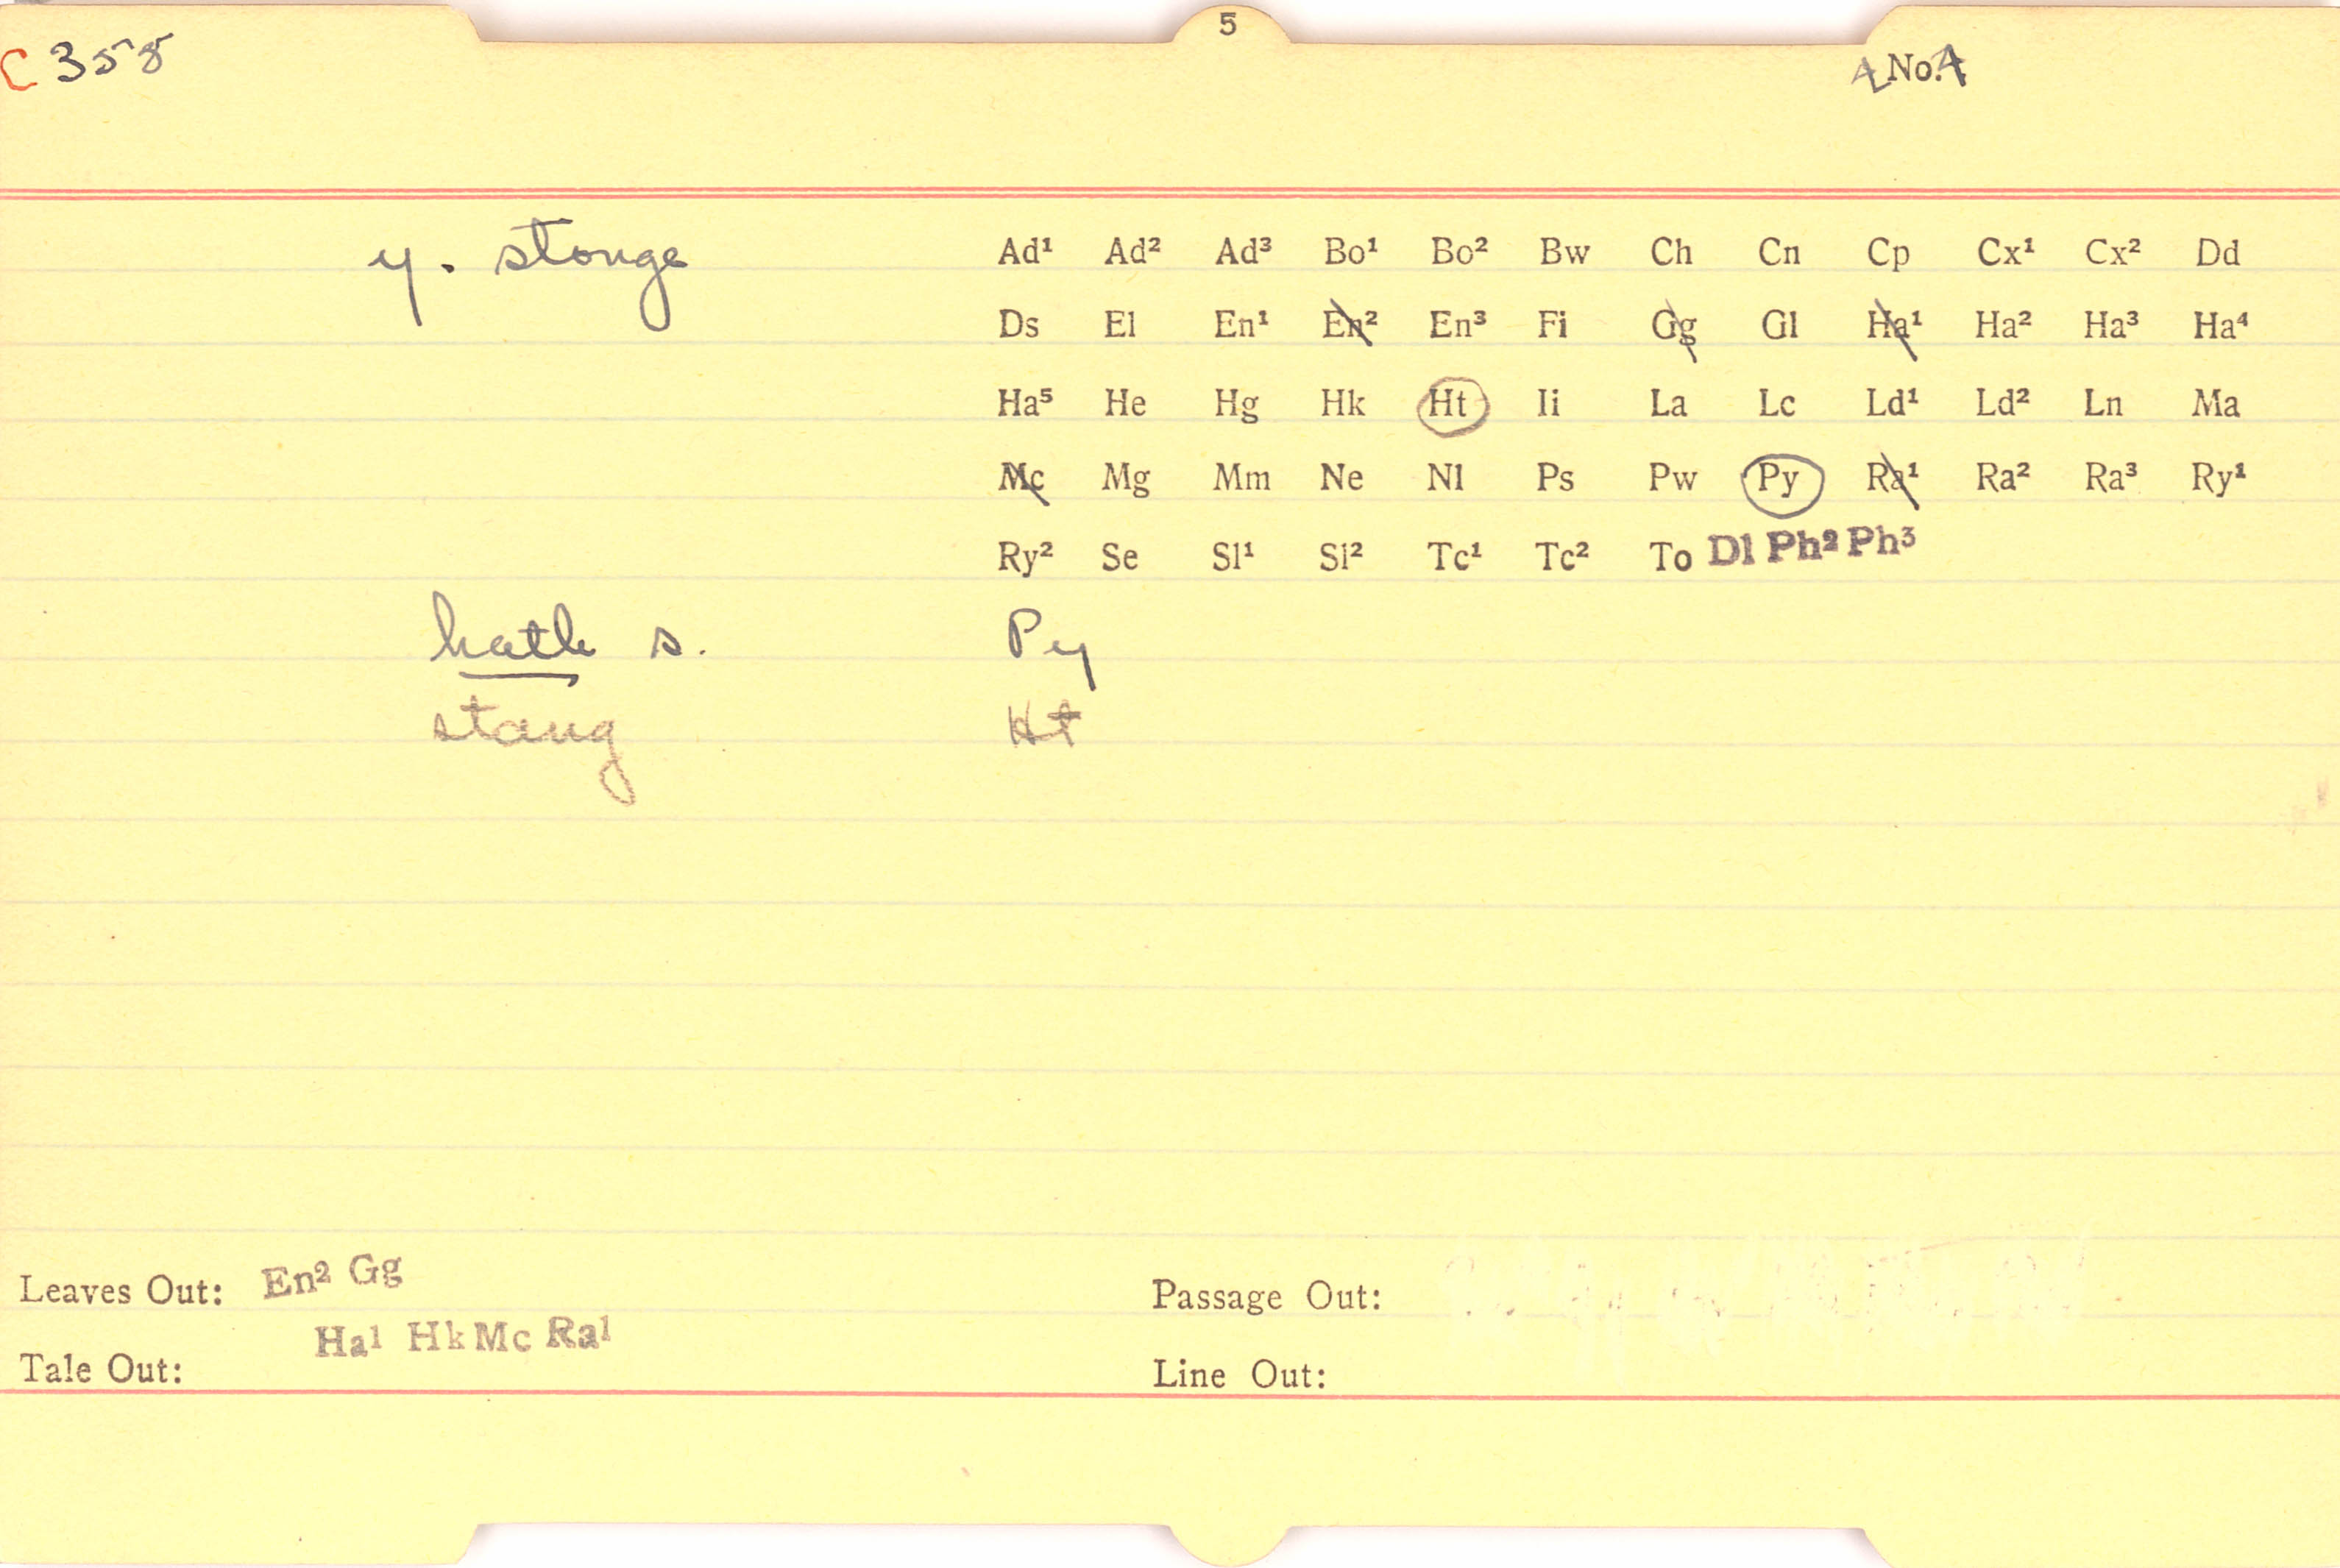 5
C 358
4 No. 4
y. stonge
Ad¹ Ad² Ad³ Bo¹ Bo² Bw Ch Cn Cp Cx¹ Cx² Dd
Ds El En¹ En² En³ Fi Gg Gl Ha¹ Ha² Ha³ Ha⁴
Ha⁵ He Hg Hk Ht Ii La Lc Ld¹ Ld² Ln Ma
Mc Mg Mm Ne Nl Ps Pw Py Ra¹ Ra² Ra³ Ry¹
Ry² Se Sl¹ Sl² Tc¹ Tc² To Dl Ph² Ph³
hath s. Py
stang Ht
Leaves Out: En² Gg
Ha¹ Hk Mc Ra¹
Tale Out:
Passage Out:
Line Out: